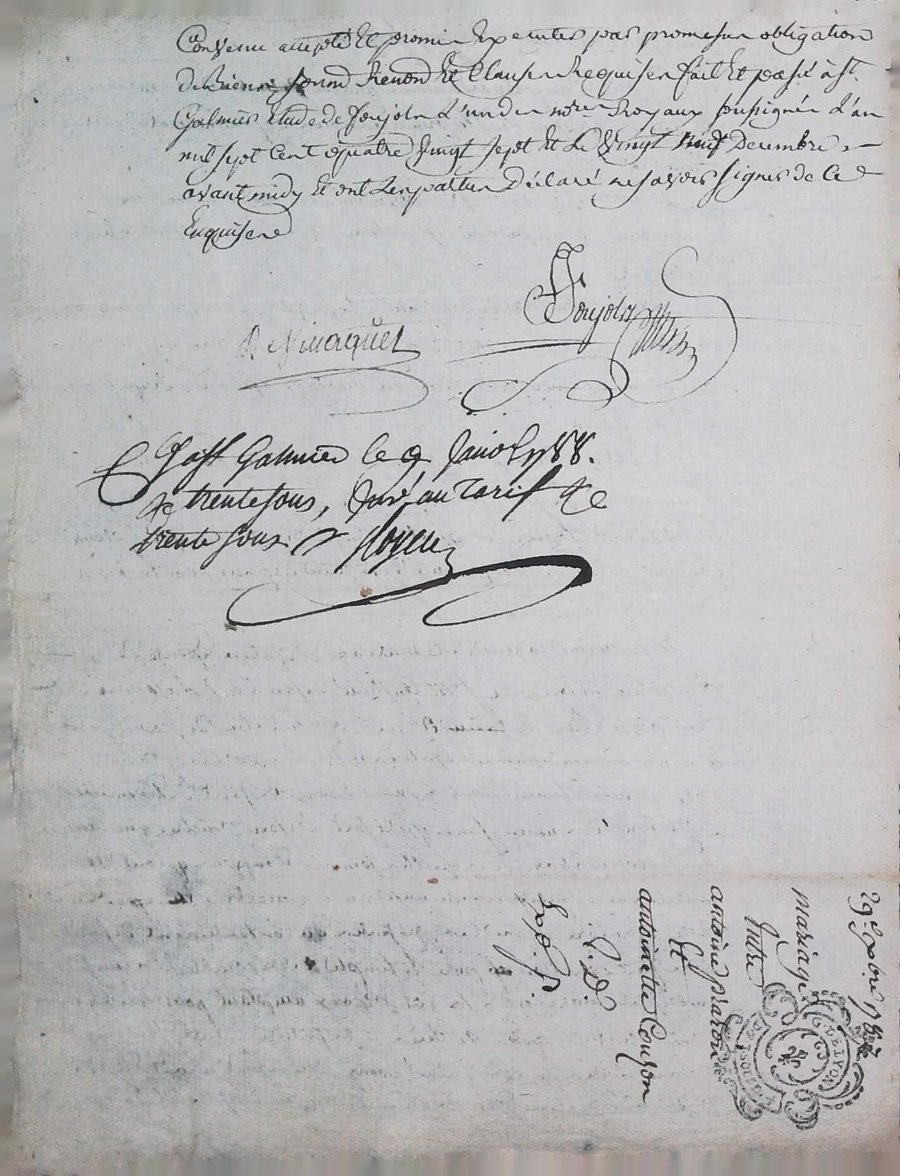 Convenu accepté Et promis Executer par promesse obligation
de Biens, soumon Renond Et Clauses Requises fait Et passé à St.
Galmier Etude de Soujols L'un des nres Royaux soussignés L'an
mil sept Cent quatre vingt sept Et Le vingt neuf Decembre
avant midy Et ont Les parties Déclaré ne savoir signer de Ce
Enquises
Soujols
Ct à St Galmier le 9 Janv 1788.
trente sous, au Tarif
trente sous
29e Xbre 17
mariage
Entre
antoine praron
Et
antoinette Couzon
Exp.
G DE LYON